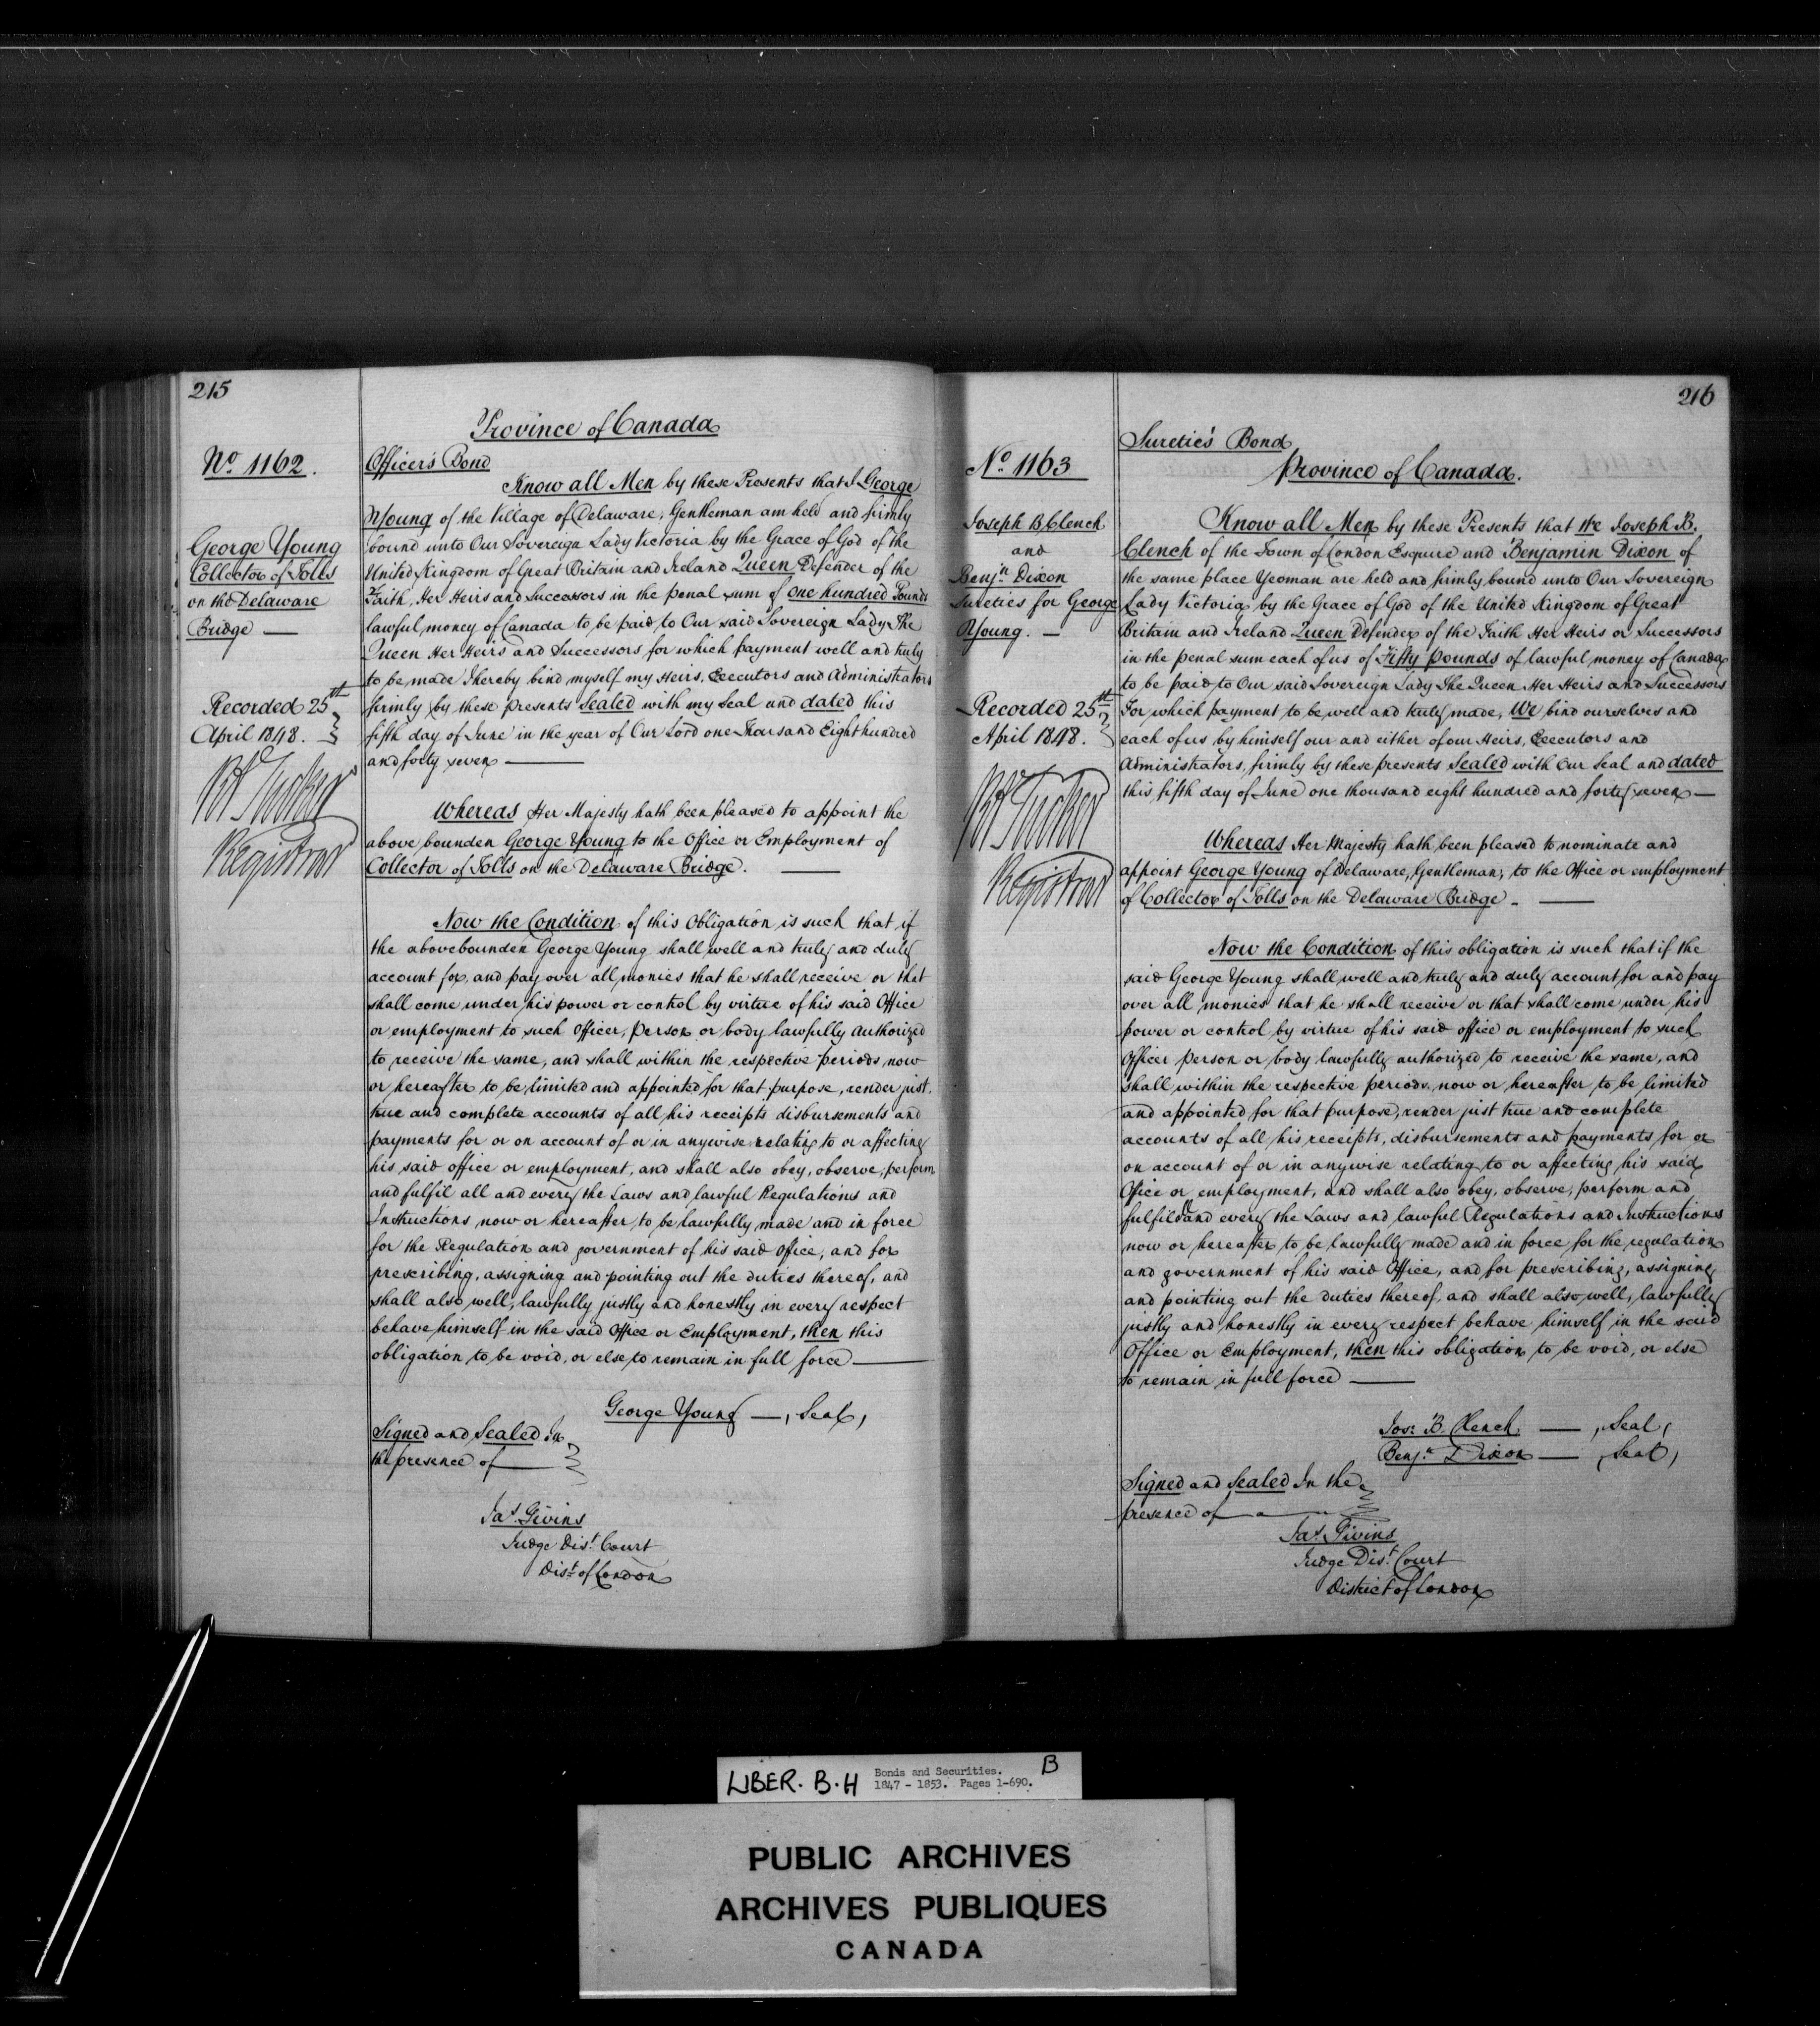 215
Province of Canada
No. 1162.
Officer's Bond
Know all Men by these Presents that I George
Young of the Village of Delaware, Gentleman am held and firmly
bound unto Our Sovereign Lady Victoria by the Grace of God of the
United Kingdom of Great Britain and Ireland Queen Defender of the
Faith, Her Heirs and Successors in the penal sum of one hundred Pounds
lawful money of Canada to be paid to Our said Sovereign Lady The
Queen Her Heirs and Successors for which payment well and truly
to be made I hereby bind myself my Heirs, Executors and Administrators
firmly by these presents Sealed with my Seal and dated this
fifth day of June in the year of Our Lord one Thousand Eight hundred
and forty seven —
George Young
Collector of Tolls
on the Delaware
Bridge —
Recorded 25th
April 1848.
RA Tucker
Registrar
Whereas Her Majesty hath been pleased to appoint the
above bounden George Young to the Office or Employment of
Collector of Tolls on the Delaware Bridge. —
Now the Condition of this Obligation is such that if
the abovebounden George Young shall well and truly and duly
account for, and pay over all monies that he shall receive or that
shall come under his power or control by virtue of his said Office
or employment to such Officer, Person or body lawfully Authorized
to receive the same, and shall within the respective periods now
or hereafter to be limited and appointed for that purpose, render just.
true and complete accounts of all his receipts disbursements and
payments for or on account of or in anywise relating to or affecting
his said office or employment, and shall also obey, observe, perform
and fulfil all and every the Laws and lawful Regulations and
Instructions now or hereafter to be lawfully made and in force
for the Regulation and government of his said Office, and for
prescribing, assigning and pointing out the duties thereof, and
shall also well, lawfully justly and honestly in every respect
behave himself in the said Office or Employment, then this
obligation to be void, or else to remain in full force —
George Young —, Seal,
Signed and Sealed In
the presence of —
Jas. Givins
Judge Dist. Court
Dist. of London
216
Suretie's Bond
No. 1163
Province of Canada.
Joseph B Clench
and
Benjn. Dixon
Sureties for George
Young. —
Recorded 25th
April 1848.
RA Tucker
Registrar
Know all Men by these Presents that We Joseph B.
Clench of the Town of London Esquire and Benjamin Dixon of
the same place Yeoman are held and firmly bound unto Our Sovereign
Lady Victoria by the Grace of God of the United Kingdom of Great
Britain and Ireland Queen Defender of the Faith Her Heirs or Successors
in the penal sum each of us of Fifty pounds of lawful money of Canada
to be paid to Our said Sovereign Lady The Queen Her Heirs and Successors
For which payment to be well and truly made, We bind ourselves and
each of us by himself our and either of our Heirs, Executors and
Administrators, firmly by these presents Sealed with Our Seal and dated
this fifth day of June one thousand eight hundred and forty seven —
Whereas Her Majesty hath been pleased to nominate and
appoint George Young of Delaware, Gentleman, to the Office or employment
of Collector of Tolls on the Delaware Bridge. —
Now the Condition of this obligation is such that if the
said George Young shall well and truly and duly account for and pay
over all monies that he shall receive or that shall come under his
power or control by virtue of his said office or employment to such
Officer Person or body lawfully authorized to receive the same, and
shall within the respective periods now or hereafter to be limited
and appointed for that purpose, render just true and complete
accounts of all his receipts, disbursements and payments for or
on account of or in anywise relating to or affecting his said
Office or employment, and shall also obey, observe, perform and
fulfil and every the Laws and lawful Regulations and Instructions
now or hereafter to be lawfully made and in force for the regulation
and government of his said Office, and for prescribing, assigning
and pointing out the duties thereof, and shall also well, lawfully
justly and honestly in every respect behave himself in the said
Office or Employment, then this obligation to be void, or else
to remain in full force —
Jos: B. Clench — , Seal,
Benjn. Dixon — , Seal,
Signed and Sealed In the
presence of —
Jas. Givins
Judge Dist. Court
District of London
LIBER. B.H
Bonds and Securities. B
1847 - 1853. Pages 1-690.
PUBLIC ARCHIVES
ARCHIVES PUBLIQUES
CANADA